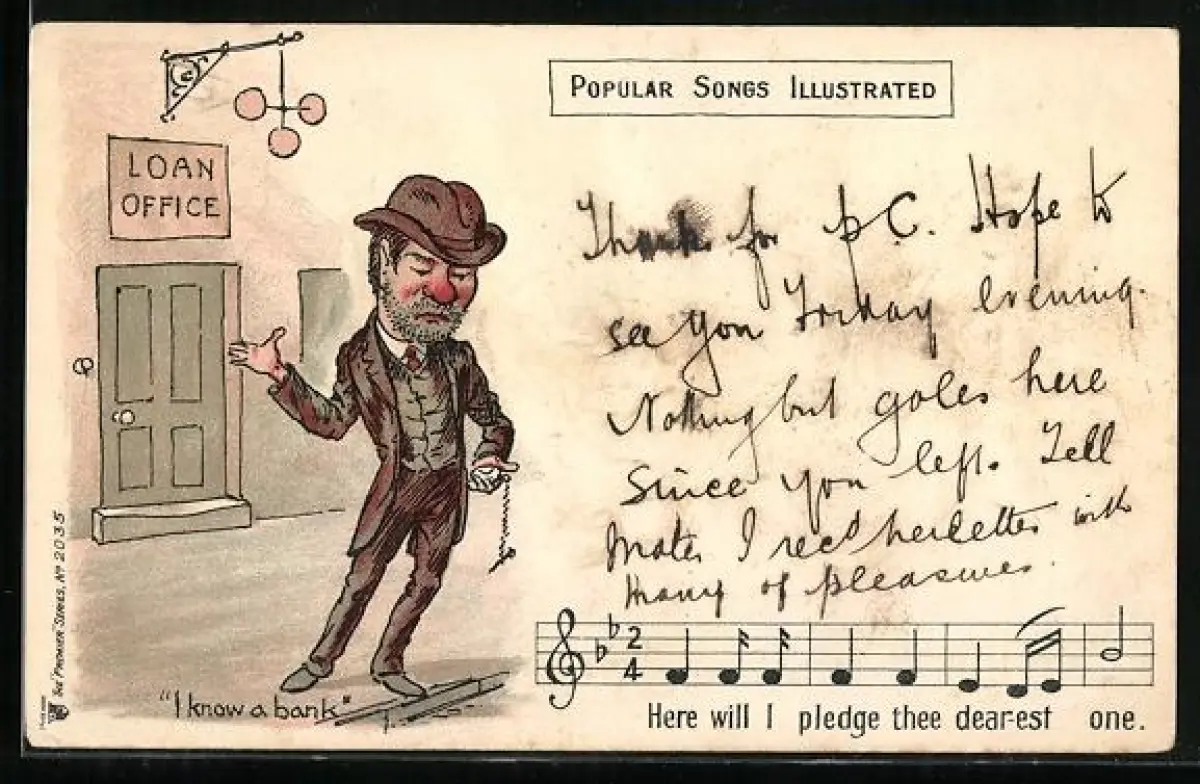 POPULAR SONGS ILLUSTRATED
LOAN
OFFICE
Thanks for p.C. Hope to
see you Friday evening.
Nothing but gales here
since you left. Tell
Mater I recd her letter with
many of pleasures.
THE "PREMIER" SERIES, No 2035
"I know a bank"
2
4
Here will I pledge thee dear-est one.